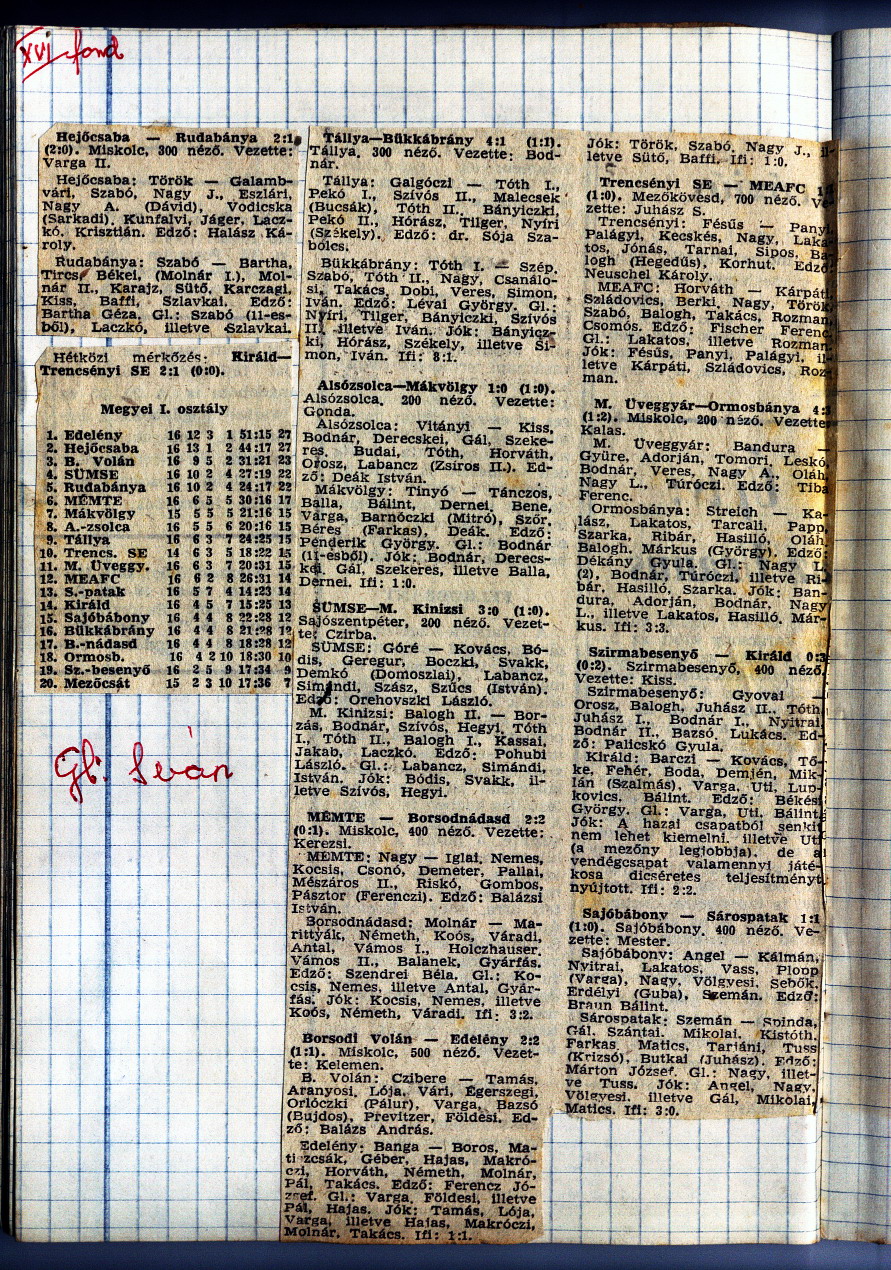 XVI fond
Hejőcsaba — Rudabánya 2:1
(2:0). Miskolc, 300 néző. Vezette:
Varga II.
Hejőcsaba: Török — Galamb-
vári, Szabó, Nagy J., Eszlári,
Nagy A. (Dávid), Vodicska
(Sarkadi), Kunfalvi, Jáger, Lacz-
kó, Krisztián. Edző: Halász Ká-
roly.
Rudabánya: Szabó — Bartha,
Tircs, Békei, (Molnár I.), Mol-
nár II., Karajz, Sütő, Karczagi,
Kiss, Baffi, Szlavkai. Edző:
Bartha Géza, Gl.: Szabó (11-es-
ből), Laczkó, illetve Szlavkai.
Hétközi mérkőzés: Királd—
Trencsényi SE 2:1 (0:0).
Megyei I. osztály
1. Edelény 16 12 3 1 51:15 27
2. Hejőcsaba 16 13 1 2 44:17 27
3. B. Volán 16 9 5 2 31:21 23
4. SÜMSE 16 10 2 4 27:19 22
5. Rudabánya 16 10 2 4 24:17 22
6. MÉMTE 16 6 5 5 30:16 17
7. Mákvölgy 15 5 5 5 21:16 15
8. A.-zsolca 16 5 5 6 20:16 15
9. Tállya 16 6 3 7 24:25 15
10. Trencs. SE 14 6 3 5 18:22 15
11. M. Üveggy. 16 6 3 7 20:31 15
12. MEAFC 16 6 2 8 26:31 14
13. S.-patak 16 5 7 4 14:23 14
14. Királd 16 4 5 7 15:25 13
15. Sajóbábony 16 4 4 8 22:28 12
16. Bükkábrány 16 4 4 8 21:28 12
17. B.-nádasd 16 4 4 8 18:28 12
18. Ormosb. 16 4 2 10 18:30 10
19. Sz.-besenyő 16 2 5 9 17:34 9
20. Mezőcsát 15 2 3 10 17:36 7
Gl: Iván
Tállya—Bükkábrány 4:1 (1:1).
Tállya, 300 néző. Vezette: Bod-
nár.
Tállya: Galgóczi — Tóth I.,
Pekó I., Szívós II., Malecsek
(Bucsák), Tóth II., Bányiczki,
Pekó II., Hórász, Tilger, Nyíri
(Székely). Edző: dr. Sója Sza-
bolcs.
Bükkábrány: Tóth I. — Szép,
Szabó, Tóth II., Nagy, Csanálo-
si, Takács, Dobi, Veres, Simon,
Iván. Edző: Lévai György. Gl.:
Nyíri, Tilger, Bányiczki, Szívós
II., illetve Iván. Jók: Bányicz-
ki, Hórász, Székely, illetve Si-
mon, Iván. Ifi: 8:1.
Alsózsolca—Mákvölgy 1:0 (1:0).
Alsózsolca, 200 néző. Vezette:
Gonda.
Alsózsolca: Vitányi — Kiss,
Bodnár, Derecskei, Gál, Szeke-
res, Budai, Tóth, Horváth,
Orosz, Labancz (Zsiros II.). Ed-
ző: Deák István.
Mákvölgy: Tinyó — Tánczos,
Balla, Bálint, Dernei, Bene,
Varga, Barnóczki (Mitró), Szőr,
Béres (Farkas), Deák. Edző:
Penderik György. Gl.: Bodnár
(11-esből). Jók: Bodnár, Derecs-
kei, Gál, Szekeres, illetve Balla,
Dernei. Ifi: 1:0.
SÜMSE—M. Kinizsi 3:0 (1:0).
Sajószentpéter, 200 néző. Vezet-
te: Czirba.
SÜMSE: Góré — Kovács, Bó-
dis, Geregur, Boczki, Svakk,
Demkó (Domoszlai), Labancz,
Simándi, Szász, Szűcs (István).
Edző: Orehovszki László.
M. Kinizsi: Balogh II. — Bor-
zás, Bodnár, Szívós, Hegyi, Tóth
I., Tóth II., Balogh I., Kassai,
Jakab, Laczkó. Edző: Pohubi
László. Gl.: Labancz, Simándi,
István. Jók: Bódis, Svakk, il-
letve Szívós, Hegyi.
MÉMTE — Borsodnádasd 2:2
(0:1). Miskolc, 400 néző. Vezette:
Kerezsi.
MÉMTE: Nagy — Iglai, Nemes,
Kocsis, Csonó, Demeter, Pallai,
Mészáros II., Riskó, Gombos,
Pásztor (Ferenczi). Edző: Balázsi
István.
Borsodnádasd: Molnár — Ma-
rittyák, Németh, Koós, Váradi,
Antal, Vámos I., Holczhauser,
Vámos II., Balanek, Gyárfás.
Edző: Szendrei Béla. Gl.: Ko-
csis, Nemes, illetve Antal, Gyár-
fás. Jók: Kocsis, Nemes, illetve
Koós, Németh, Váradi. Ifi: 3:2.
Borsodi Volán — Edelény 2:2
(1:1). Miskolc, 500 néző. Vezet-
te: Kelemen.
B. Volán: Czibere — Tamás,
Aranyosi, Lója, Vári, Egerszegi,
Orlóczki (Pálur), Varga, Bazsó
(Bujdos), Previtzer, Földesi. Ed-
ző: Balázs András.
Edelény: Banga — Boros, Ma-
tiszcsák, Géber, Hajas, Makró-
czi, Horváth, Németh, Molnár,
Pál, Takács. Edző: Ferencz Jó-
zsef. Gl.: Varga, Földesi, illetve
Pál, Hajas. Jók: Tamás, Lója,
Varga, illetve Hajas, Makróczi,
Molnár, Takács. Ifi: 1:1.
Jók: Török, Szabó, Nagy J., il-
letve Sütő, Baffi. Ifi: 1:0.
Trencsényi SE — MEAFC 1
(1:0). Mezőkövesd, 700 néző. Ve-
zette: Juhász S.
Trencsényi: Fésűs — Panyi,
Palágyi, Kecskés, Nagy, Laka-
tos, Jónás, Tarnai, Sipos, Ba-
logh (Hegedűs), Korhut. Edző:
Neuschel Károly.
MEAFC: Horváth — Kárpáti,
Szládovics, Berki, Nagy, Török,
Szabó, Balogh, Takács, Rozman,
Csomós. Edző: Fischer Ferenc.
Gl.: Lakatos, illetve Rozman.
Jók: Fésűs, Panyi, Palágyi, il-
letve Kárpáti, Szládovics, Roz-
man.
M. Üveggyár—Ormosbánya 4:3
(1:2). Miskolc, 200 néző. Vezette:
Kalas.
M. Üveggyár: Bandura —
Gyüre, Adorján, Tomori, Leskó,
Bodnár, Veres, Nagy A., Oláh,
Nagy L., Túróczi. Edző: Tiba
Ferenc.
Ormosbánya: Streich — Ka-
lász, Lakatos, Tarcali, Papp,
Szarka, Ribár, Hasilló, Oláh,
Balogh, Márkus (György). Edző:
Dékány Gyula. Gl.: Nagy L.
(2), Bodnár, Túróczi, illetve Ri-
bár, Hasilló, Szarka. Jók: Ban-
dura, Adorján, Bodnár, Nagy
L., illetve Lakatos, Hasilló, Már-
kus. Ifi: 3:3.
Szirmabesenyő — Királd 0:3
(0:2). Szirmabesenyő, 400 néző.
Vezette: Kiss.
Szirmabesenyő: Gyovai —
Orosz, Balogh, Juhász II., Tóth,
Juhász I., Bodnár I., Nyitrai,
Bodnár II., Bazsó, Lukács. Ed-
ző: Palicskó Gyula.
Királd: Barczi — Kovács, Tő-
ke, Fehér, Boda, Demjén, Mik-
lán (Szalmás), Varga, Uti, Lup-
kovics, Bálint. Edző: Békési
György. Gl.: Varga, Uti, Bálint.
Jók: A hazai csapatból senkit
nem lehet kiemelni, illetve Uti
(a mezőny legjobbja), de a
vendégcsapat valamennyi játé-
kosa dicséretes teljesítményt
nyújtott. Ifi: 2:2.
Sajóbábony — Sárospatak 1:1
(1:0). Sajóbábony, 400 néző. Ve-
zette: Mester.
Sajóbábony: Angel — Kálmán,
Nyitrai, Lakatos, Vass, Plopp
(Varga), Nagy, Völgyesi, Sebők,
Erdélyi (Guba), Szemán. Edző:
Braun Bálint.
Sárospatak: Szemán — Spinda,
Gál, Szántai, Mikolai, Kistóth,
Farkas, Matics, Tarjáni, Tuss
(Krizsó), Butkai (Juhász). Edző:
Márton József. Gl.: Nagy, illet-
ve Tuss. Jók: Angel, Nagy,
Völgyesi, illetve Gál, Mikolai,
Matics. Ifi: 3:0.